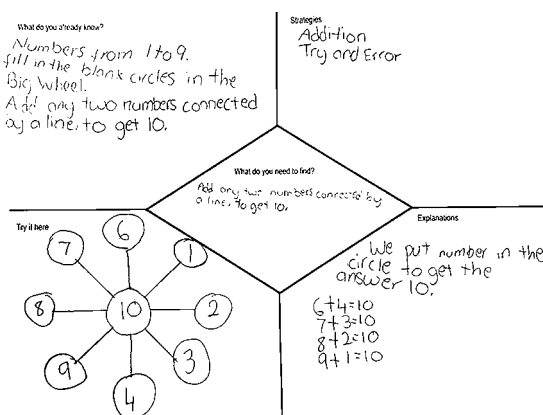 What do you already know?
Numbers from 1 to 9.
fill in the blank circles in the
Big Wheel.
Add any two numbers connected
by a line, to get 10.
Strategies
Addition
Try and Error
What do you need to find?
Add any two numbers connected by
a line, to get 10.
Try it here
6
7
1
8
10
2
9
3
4
Explanations
We put number in the
circle to get the
answer 10.
6+4=10
7+3=10
8+2=10
9+1=10